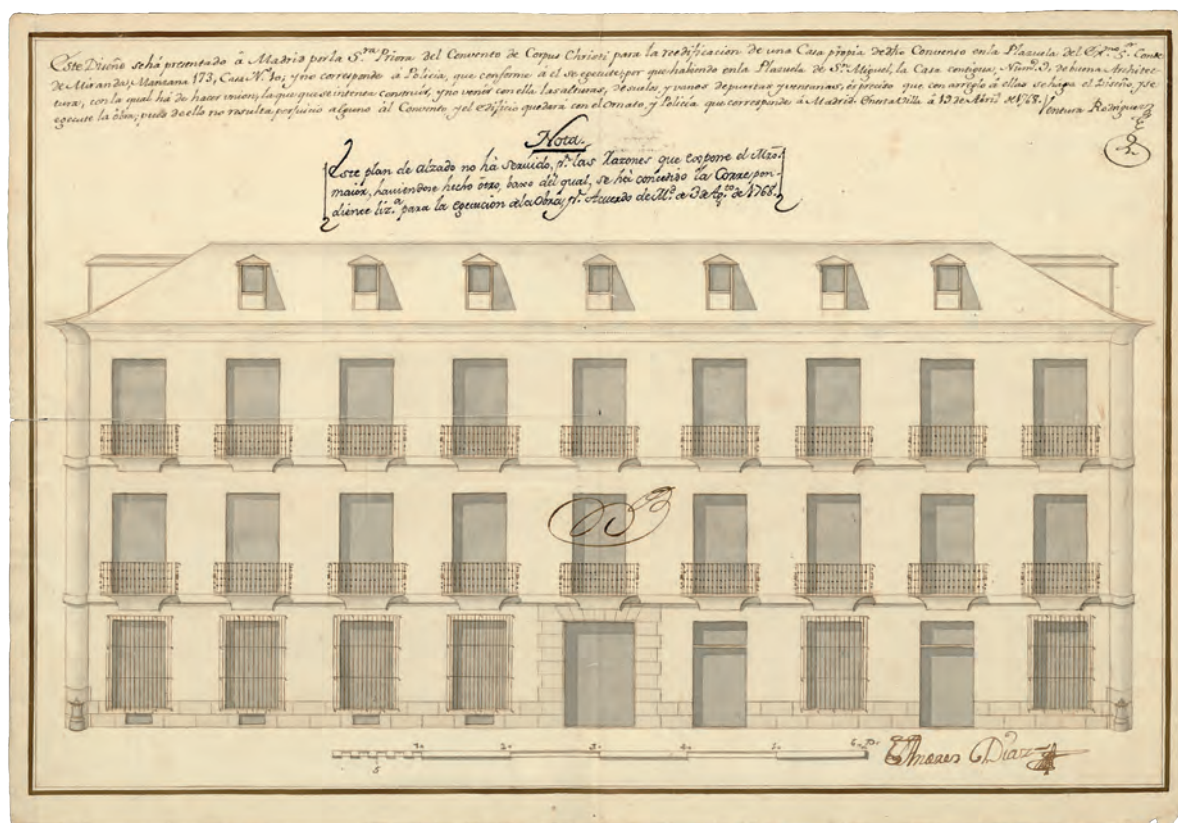 Este Diseño se há presentado â Madrid por la S.ra Priora del Convento de Corpus Christi para la reedificacion de una Casa propia de dho Convento en la Plazuela del Ex.mo S.r Conde
de Miranda, Manzana 173, Casa N.º 10; y no corresponde â Policía, que conforme â èl se egecute; por que habiendo en la Plazuela de S.n Miguel, la Casa contigua, Núm.º 9, de buena Architec-
tura, con la qual há de hacer union, la que quiere intenta construir, y no venir con ella las alturas, de suelos, y vanos de puertas y ventanas, es preciso que con arreglo â ellas se haga el Diseño, y se
egecute la obra; pues de ello no resulta perjuicio alguno âl Convento, y el edificio quedará con el ornato, y Policía que corresponde â Madrid. En esta Villa â 13 de Abril de 1768. Ventura Rodriguez
Nota.
Este plan de alzado no há servido, p.r las Razones que expone el Mro.
maior, haviendose hecho ótro, baxo del qual, se há concedido la Correspon-
diente liz.a para la egecucion de la Obra, p.r Acuerdo de M.d de 3 de Ag.to de 1768.
1. 2. 3. 4. 5. 6. P.s
5
Diaz